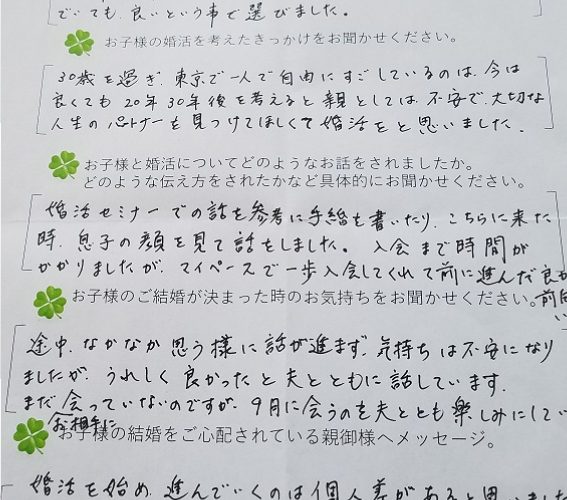 でいても、良いという事で選びました。
お子様の婚活を考えたきっかけをお聞かせください。
30歳を過ぎ、東京で一人で自由にすごしているのは、今は
良くても20年30年後を考えると親としては、不安で、大切な
人生のパートナーを見つけてほしくて婚活をと思いました。
お子様と婚活についてどのようなお話をされましたか。
どのような伝え方をされたかなど具体的にお聞かせください。
婚活セミナーでの話を参考に手紙を書いたり、こちらに来た
時、息子の顔を見て話をしました。入会まで時間が
かかりましたが、マイペースで一歩入会してくれて前に進んだ良かった
前向
い
お子様のご結婚が決まった時のお気持ちをお聞かせください。
途中、なかなか思う様に話が進まず、気持ちは不安になり
ましたが、うれしく良かったと夫とともに話しています。
まだ会っていないのですが、9月に会うのを夫ととも楽しみにしてい
お相手に
お子様の結婚をご心配されている親御様へメッセージ。
婚活を始め、進んでいくのは個人差があると思いました